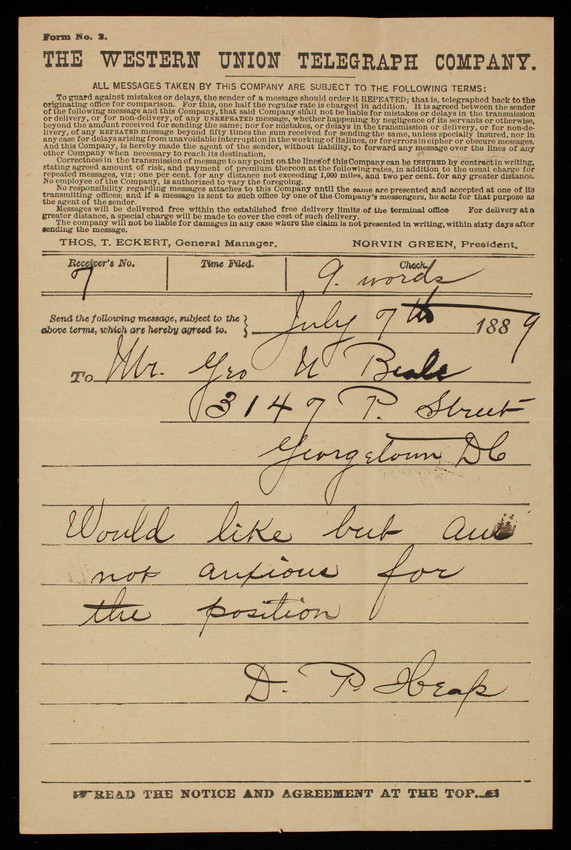 Form No. 2.
THE WESTERN UNION TELEGRAPH COMPANY.
ALL MESSAGES TAKEN BY THIS COMPANY ARE SUBJECT TO THE FOLLOWING TERMS:
To guard against mistakes or delays, the sender of a message should order it REPEATED; that is, telegraphed back to the
originating office for comparison. For this, one half the regular rate is charged in addition. It is agreed between the sender
of the following message and this Company, that said Company shall not be liable for mistakes or delays in the transmission
or delivery, or for non-delivery, of any UNREPEATED message, whether happening by negligence of its servants or otherwise,
beyond the amount received for sending the same; nor for mistakes or delays in the transmission or delivery, or for non-de-
livery, of any REPEATED message beyond fifty times the sum received for sending the same, unless specially insured, nor in
any case for delays arising from unavoidable interruption in the working of its lines, or for errors in cipher or obscure messages.
And this Company, is hereby made the agent of the sender, without liability, to forward any message over the lines of any
other Company when necessary to reach its destination.
Correctness in the transmission of message to any point on the lines of this Company can be INSURED by contract in writing,
stating agreed amount of risk, and payment of premium thereon at the following rates, in addition to the usual charge for
repeated messages, viz: one per cent. for any distance not exceeding 1,000 miles, and two per cent. for any greater distance.
No employee of the Company, is authorized to vary the foregoing.
No responsibility regarding messages attaches to this Company until the same are presented and accepted at one of its
transmitting offices; and if a message is sent to such office by one of the Company's messengers, he acts for that purpose as
the agent of the sender.
Messages will be delivered free within the established free delivery limits of the terminal office For delivery at a
greater distance, a special charge will be made to cover the cost of such delivery.
The company will not be liable for damages in any case where the claim is not presented in writing, within sixty days after
sending the message.
THOS. T. ECKERT, General Manager. NORVIN GREEN, President.
Receiver's No. Time Filed. Check.
7 9. words
Send the following message, subject to the
above terms, which are hereby agreed to.
July 7th 1889
To Mr. Geo N Beale
3147 P. Street
Georgetown DC
Would like but am
not anxious for
the position
D. P. Heap
READ THE NOTICE AND AGREEMENT AT THE TOP.